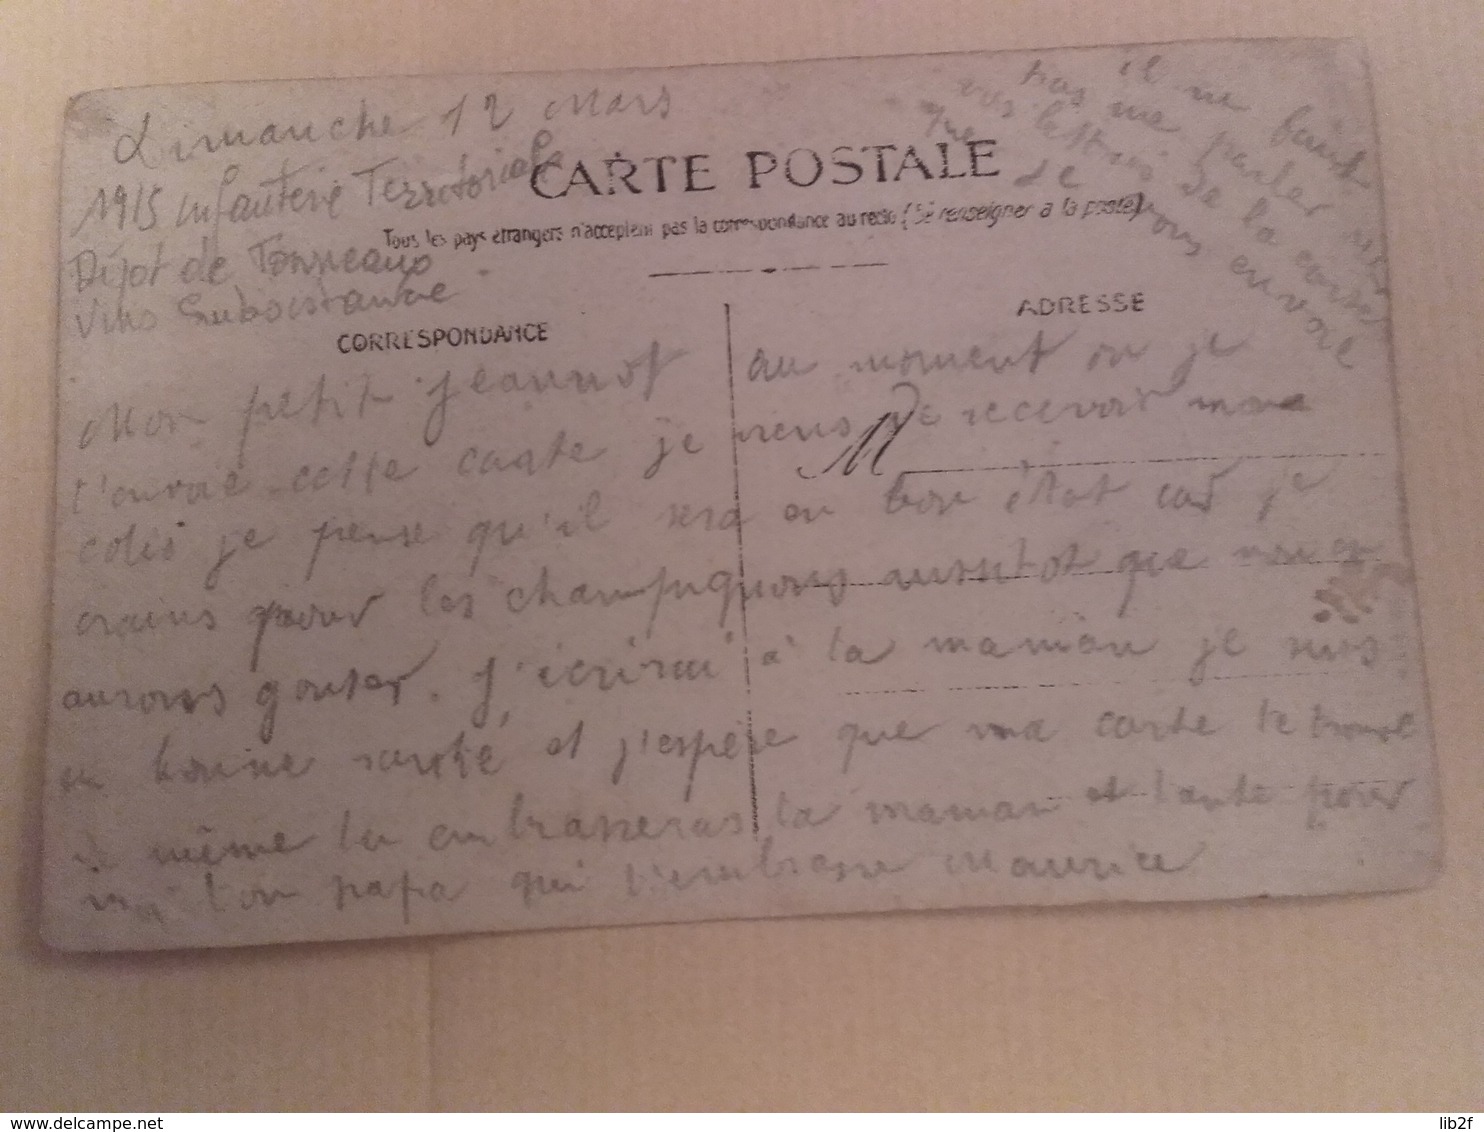 Dimanche 12 Mars
1915 infanterie Territoriale
Dépot de Tonneaux
Vins Subsistance
il ne faut
pas me parler
vos lettres de la carte
que je vous envoie
CARTE POSTALE
Tous les pays étrangers n'acceptent pas la correspondance au recto (Se renseigner à la poste)
CORRESPONDANCE
ADRESSE
M
Mon petit Jeannot au moment ou je
t'envoie cette carte je viens de recevoir mon
colis je pense qu'il sera en bon état car je
crains pour les champignons aussitot que nous en
aurons gouter. J'écrirai à ta maman je suis
en bonne santé et j'espère que ma carte te trouve
de même tu embrasseras ta maman et tante pour
moi ton papa qui t'embrasse Maurice
www.delcampe.net
lib2f